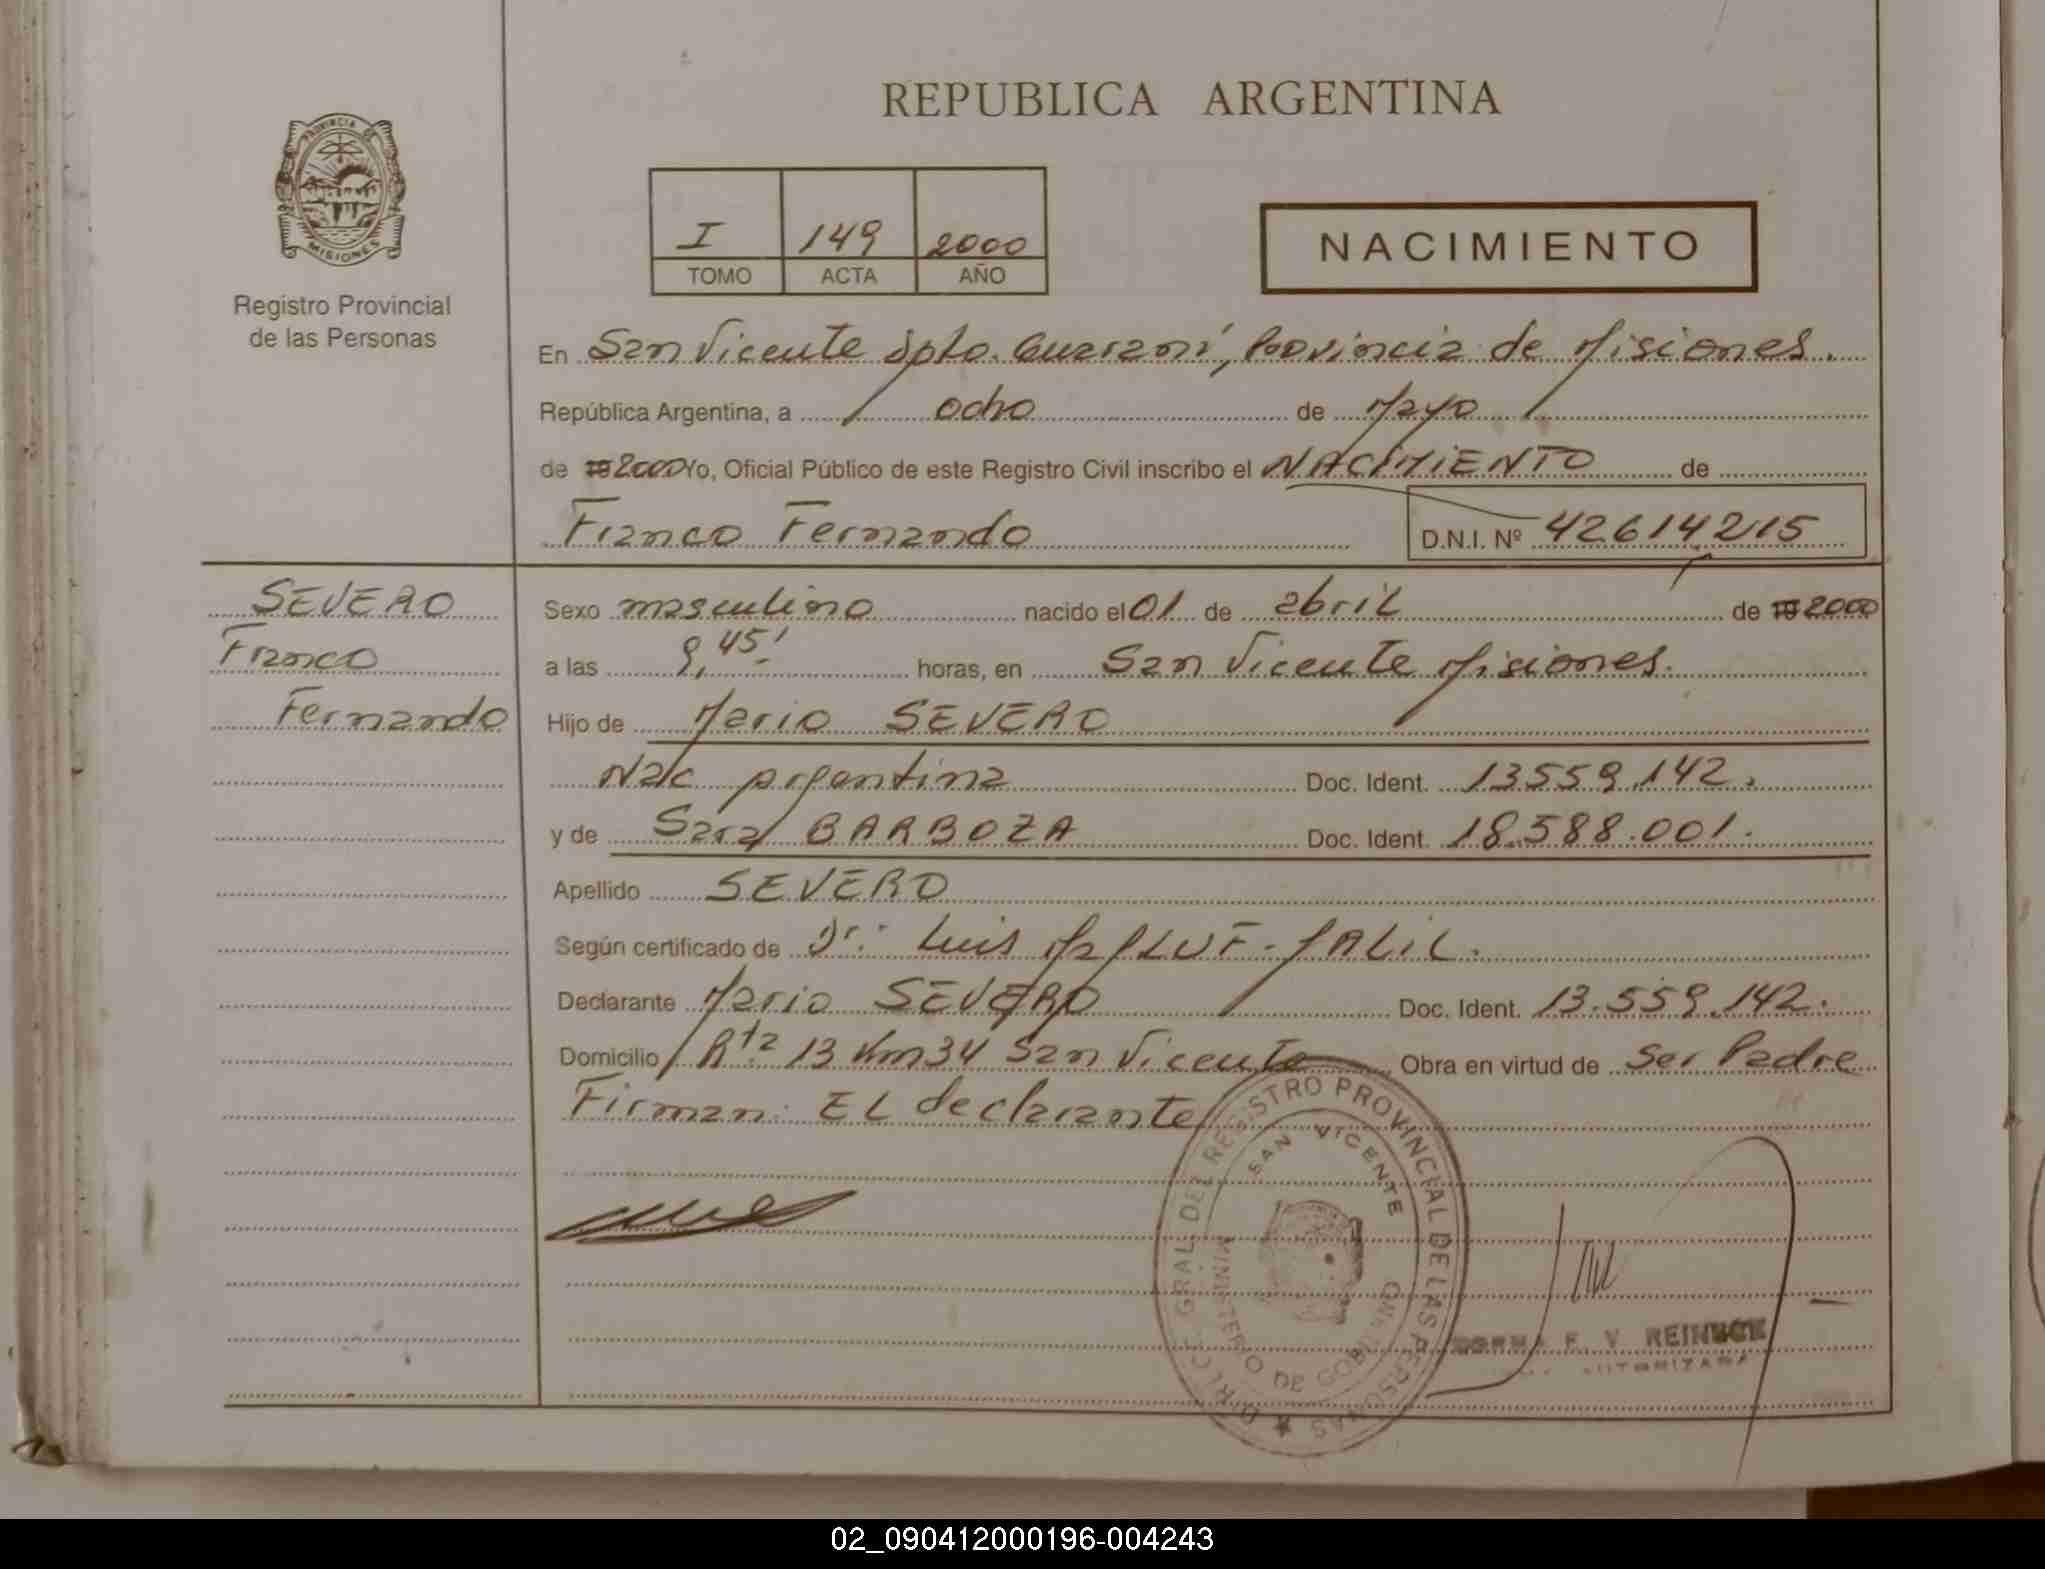 REPUBLICA ARGENTINA
PROVINCIA DE
MISIONES
Registro Provincial
de las Personas
I 149 2000
TOMO ACTA AÑO
NACIMIENTO
En San Vicente Dpto. Guaraní, Provincia de Misiones.
República Argentina, a ocho de Mayo
de 19 2000 Yo, Oficial Público de este Registro Civil inscribo el NACIMIENTO de
Franco Fernando D.N.I. Nº 42614215
SEVERO
Franco
Fernando
Sexo masculino nacido el 01 de abril de 19 2000
a las 9,45' horas, en San Vicente Misiones.
Hijo de Mario SEVERO
Nac Argentina Doc. Ident. 13559.142.
y de Sara BARBOZA Doc. Ident. 18.588.001.
Apellido SEVERO
Según certificado de Dr. Luis JALIL.
Declarante Mario SEVERO Doc. Ident. 13.559.142.
Domicilio Rta 13 Km 34 San Vicente Obra en virtud de Ser Padre
Firman: EL declarante
DIRECC. GRAL. DEL REGISTRO PROVINCIAL DE LAS PERSONAS
SAN VICENTE
MINISTERIO DE GOBIERNO
F. V. REINECK
AUTORIZADA
02_090412000196-004243